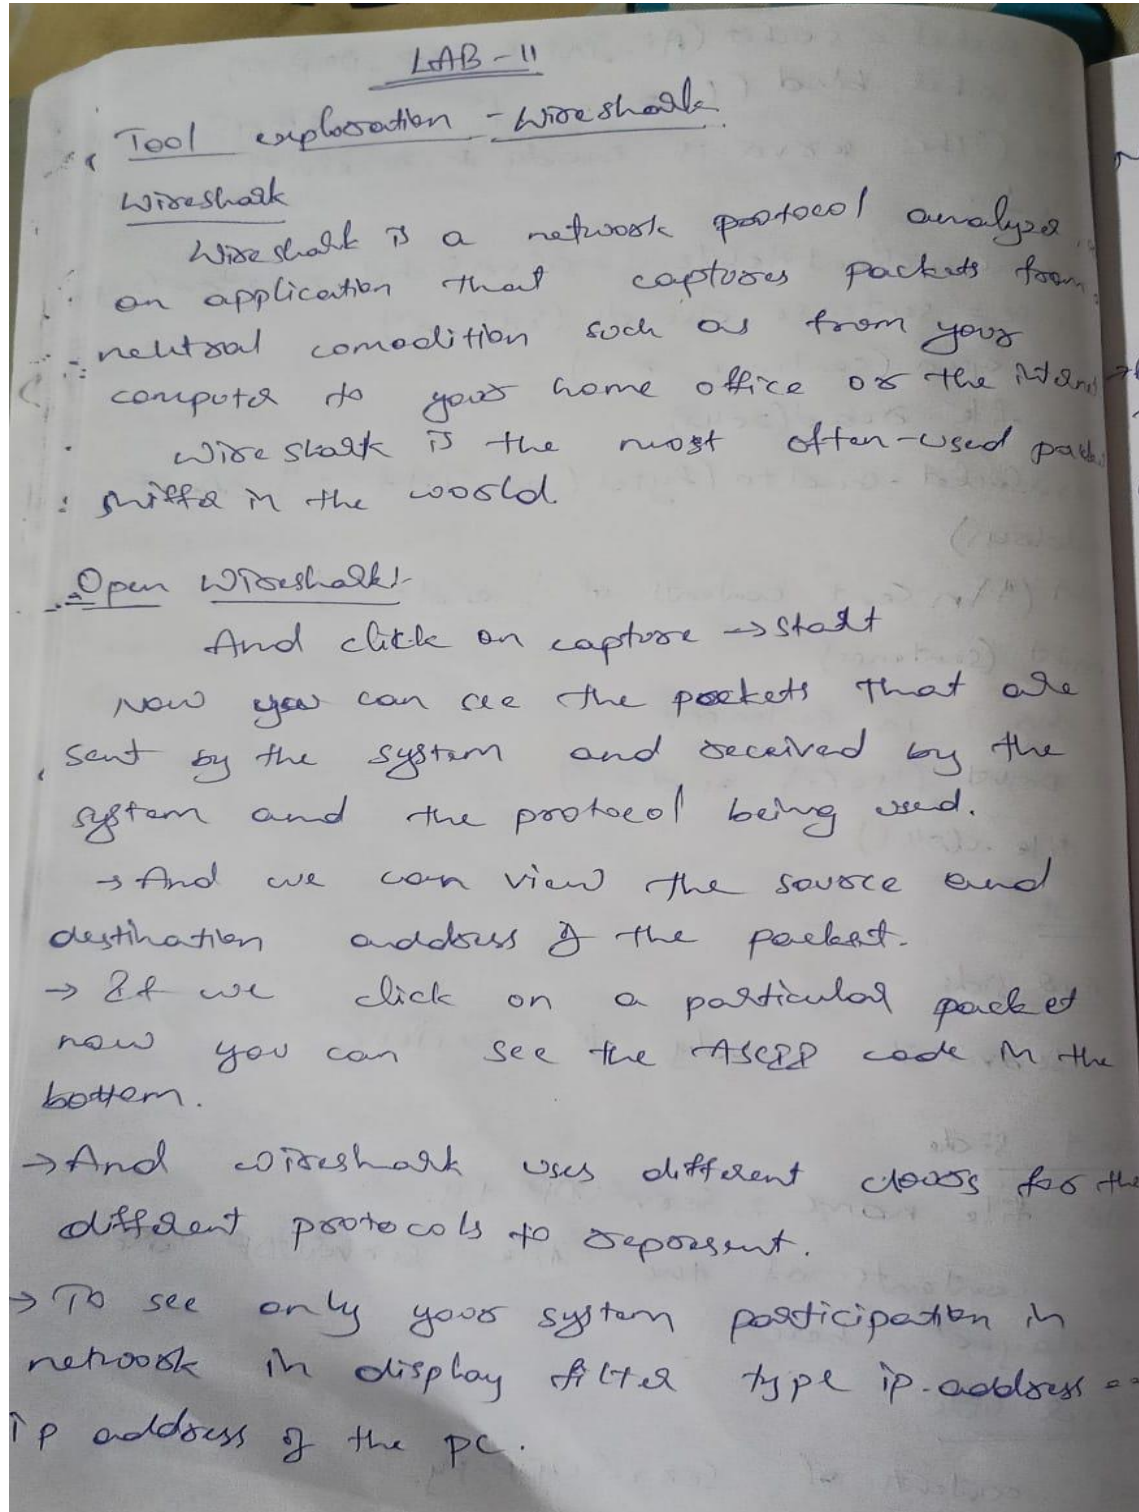 LAB - 11
Tool exploration - Wireshark
Wireshark
Wireshark is a network protocol analyzer,
an application that captures packets from
neutral comodition such as from your
computer to your home office or the
Wireshark is the most often-used
sniffer in the world.
Open Wireshark:-
And click on capture → Start
Now you can see the packets that are
sent by the system and received by the
system and the protocol being used.
→ And we can view the source and
destination address of the packet.
→ If we click on a particular packet
now you can see the ASCII code in the
bottom.
→ And wireshark uses different cloors for the
different protocols to represent.
→ To see only your system participation in
network in display filter type ip.address ==
ip address of the pc.